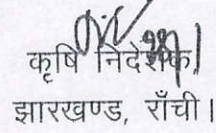 कृषि निदेशक,
झारखण्ड, राँची।